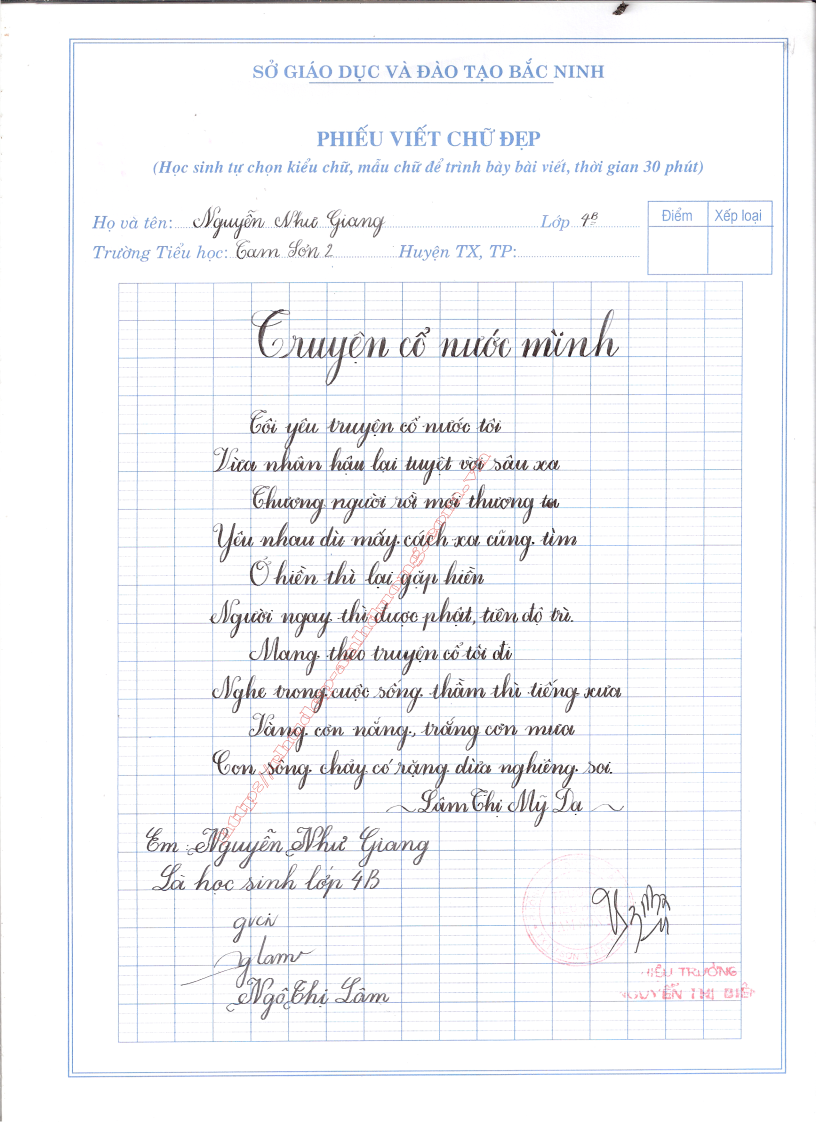 SỞ GIÁO DỤC VÀ ĐÀO TẠO BẮC NINH
PHIẾU VIẾT CHỮ ĐẸP
(Học sinh tự chọn kiểu chữ, mẫu chữ để trình bày bài viết, thời gian 30 phút)
Họ và tên: Nguyễn Như Giang Lớp 4B
Điểm Xếp loại
Trường Tiểu học: Tam Sơn 2 Huyện TX, TP:
Truyện cổ nước mình
Tôi yêu truyện cổ nước tôi
Vừa nhân hậu lại tuyệt vời sâu xa
Thương người rồi mới thương ta
Yêu nhau dù mấy cách xa cũng tìm
Ở hiền thì lại gặp hiền
Người ngay thì được phật, tiên độ trì.
Mang theo truyện cổ tôi đi
Nghe trong cuộc sống thầm thì tiếng xưa
Vàng cơn nắng, trắng cơn mưa
Con sông chảy có rặng dừa nghiêng soi.
~ Lâm Thị Mỹ Dạ ~
Em : Nguyễn Như Giang
Là học sinh lớp 4B
gvcn
glam
Ngô Thị Lâm
HIỆU TRƯỞNG
NGUYỄN THỊ BIÊN